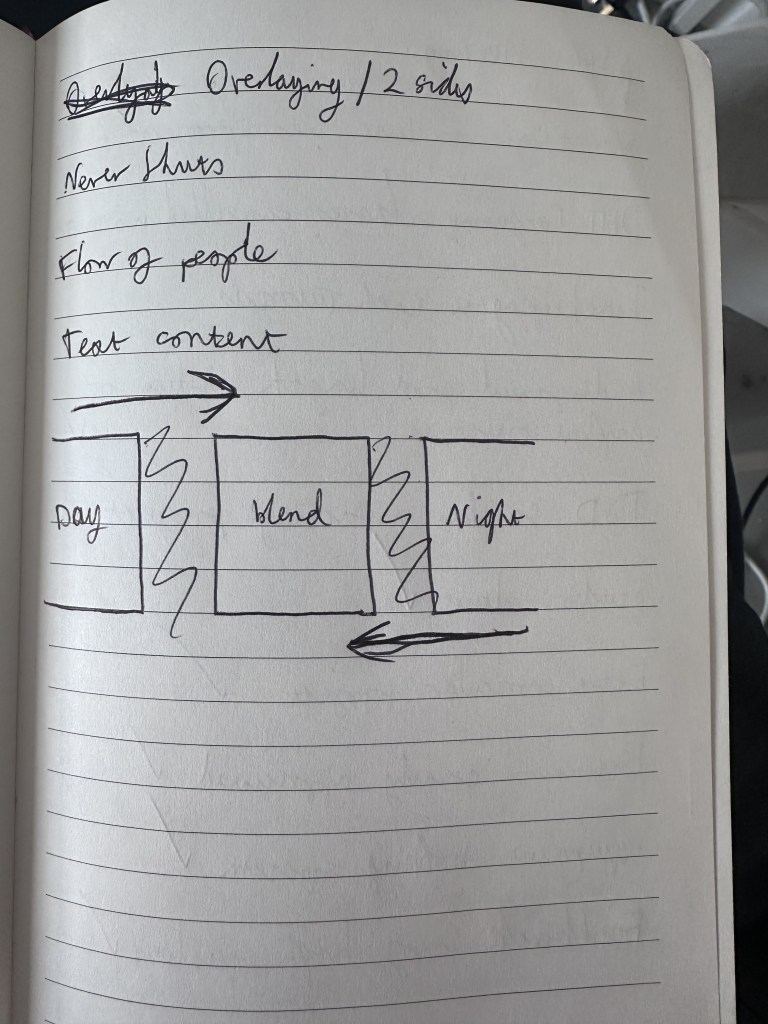 Overlaying / 2 sides
Never Shuts
Flow of people
Text content
Day blend Night